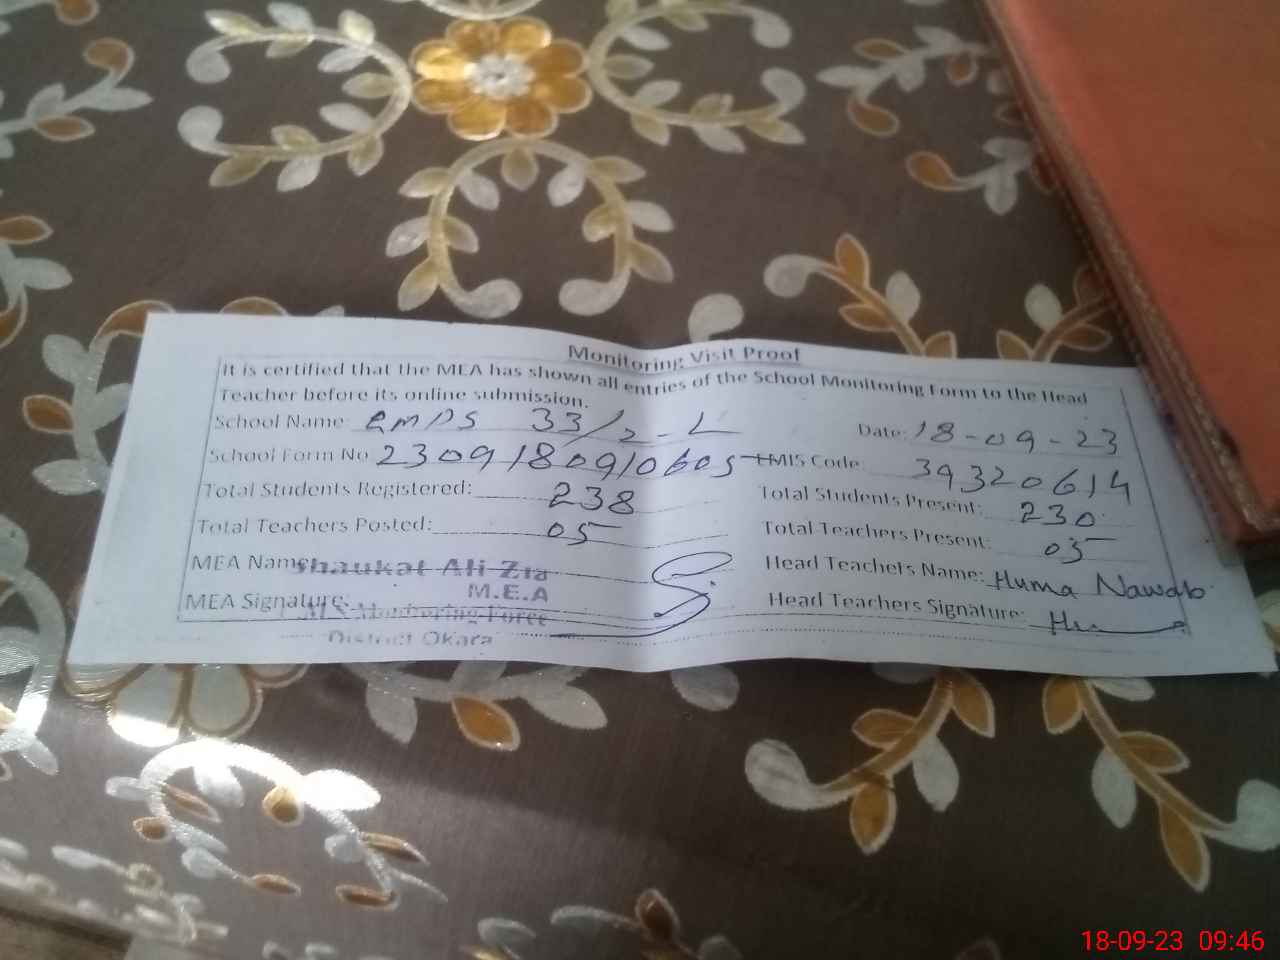 Monitoring Visit Proof
It is certified that the MEA has shown all entries of the School Monitoring Form to the Head
Teacher before its online submission.
School Name: GMPS 33/2-L Date: 18-09-23
School Form No 2309180910605 EMIS Code: 39320614
Total Students Registered: 238 Total Students Present: 230
Total Teachers Posted: 05 Total Teachers Present: 05
MEA Name Shaukat Ali Zia Head Teachers Name: Huma Nawab
M.E.A
MEA Signature: Monitoring Force Head Teachers Signature:
District Okara
18-09-23 09:46